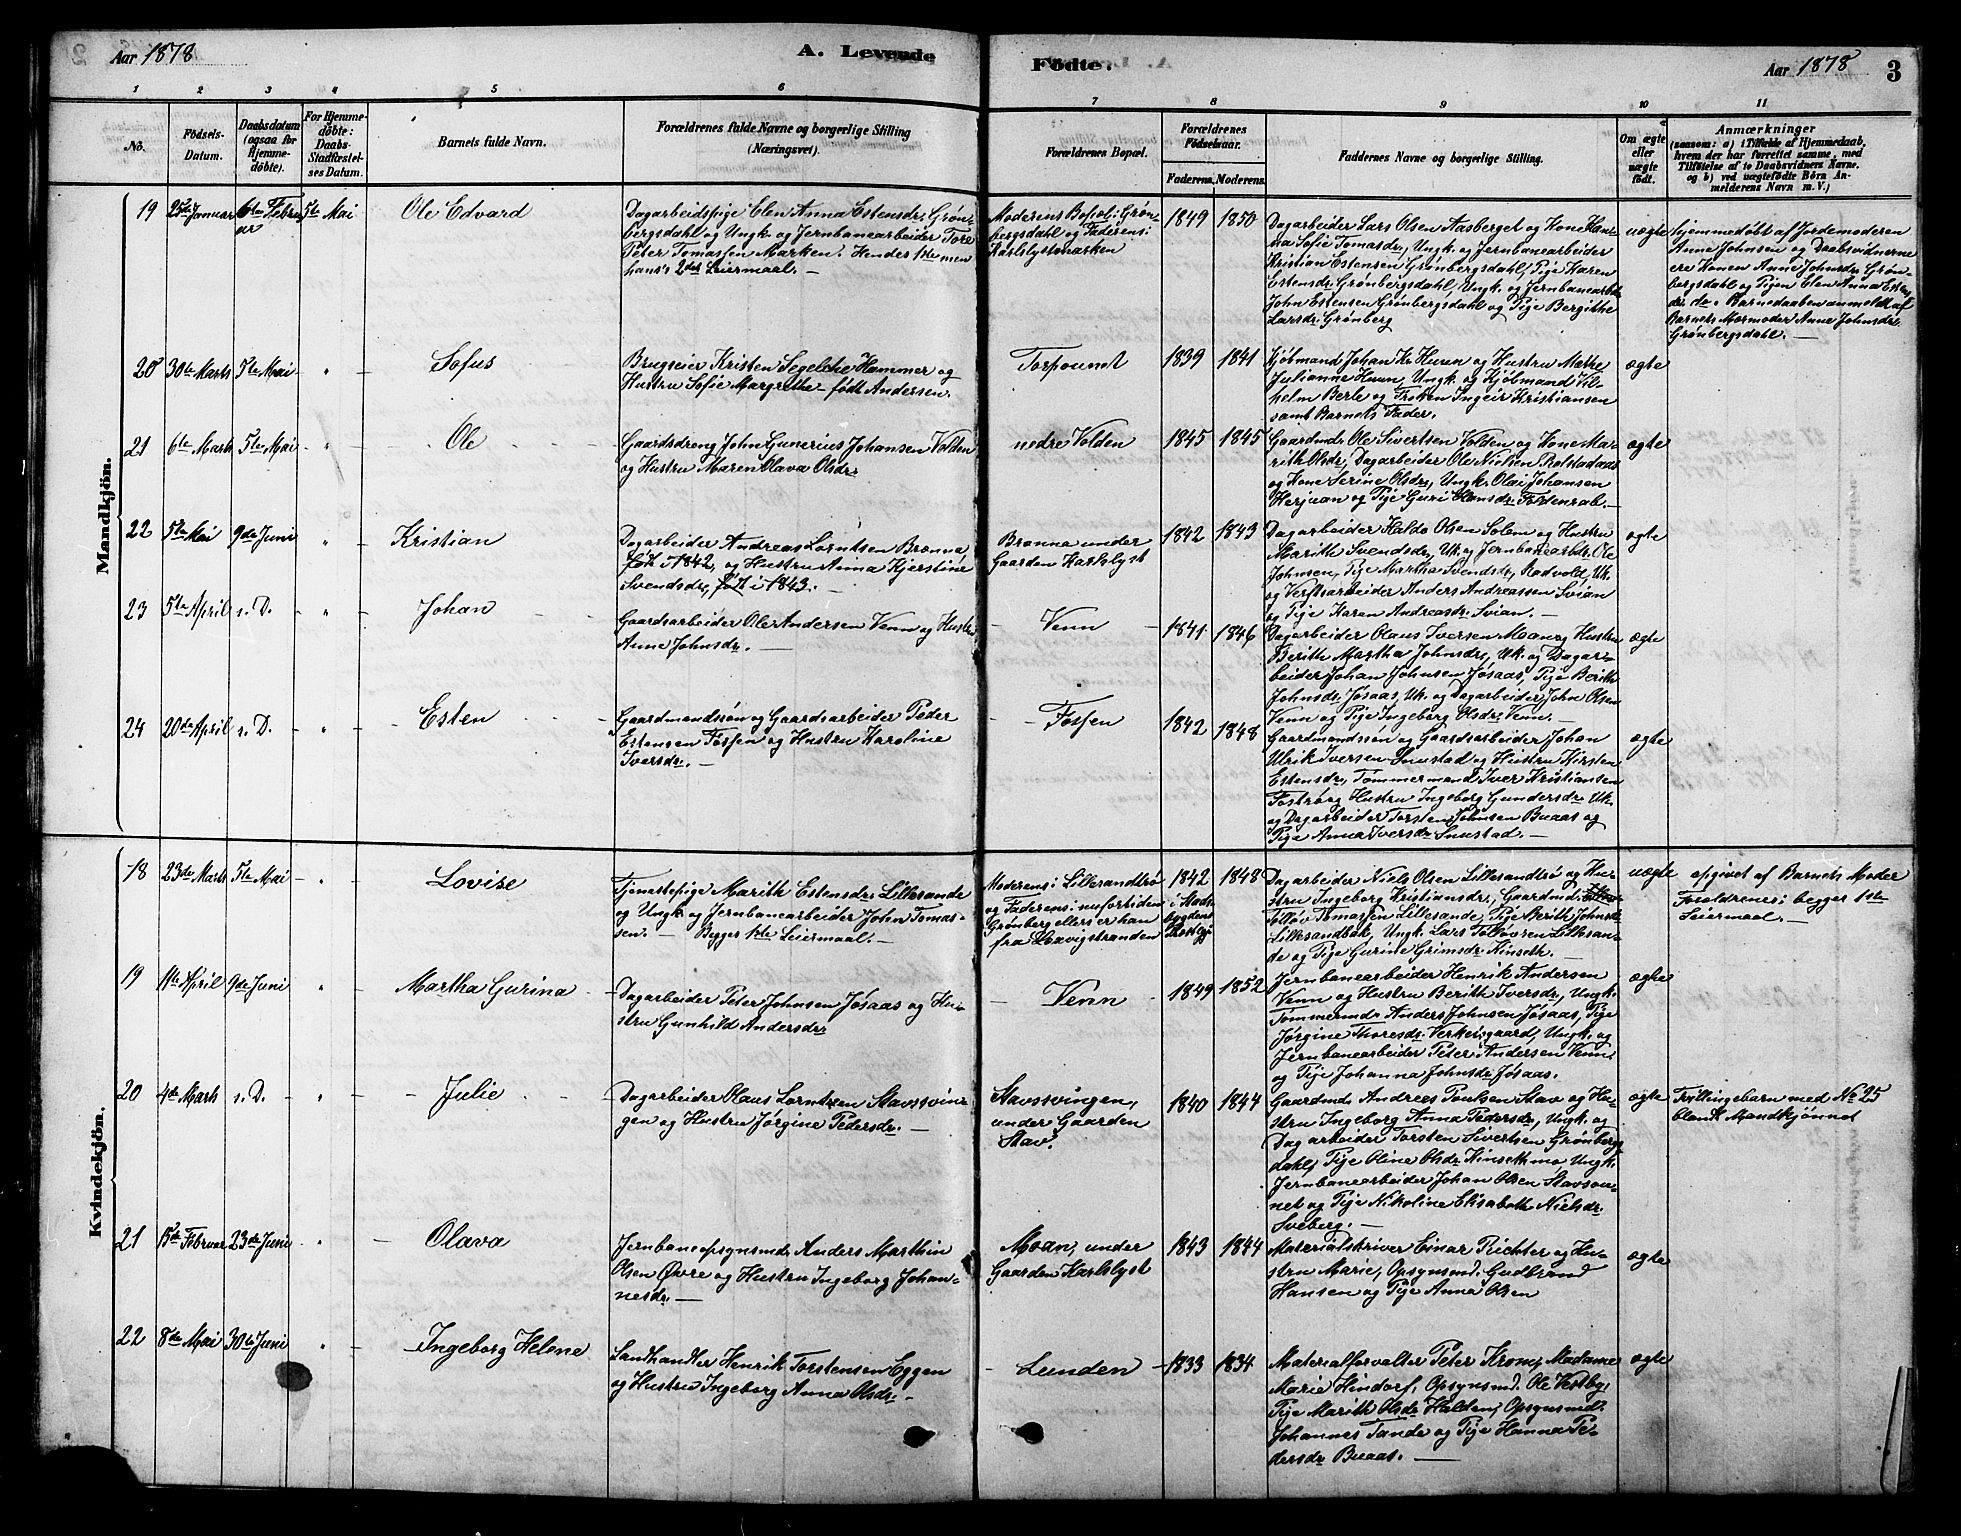 Aar 1878
A. Levende
Födte.
Aar 1878
3
1
2
3
4
5
6
7
8
9
10
11
No.
Födsels-
Datum.
Daabsdatum
(ogsaa for
Hjemme-
döbte).
For Hjemme-
döbte:
Daabs-
Stadfæstel-
ses Datum.
Barnets fulde Navn.
Forældrenes fulde Navne og borgerlige Stilling
(Næringsvei).
Forældrenes Bopæl.
Forældrenes
Födselsaar.
Faderens.
Moderens.
Faddernes Navne og borgerlige Stilling.
Om ægte
eller
uægte
födt.
Anmærkninger
(saasom: a) i Tilfælde af Hjemmedaab,
hvem der har forrettet samme, med
Tilföielse af to Daabsvidners Navne.
og b) ved uægtefödte Börn An-
melderens Navn m. V.)
Mandkjön.
19
25de Januar
6te Febru
ar
5te Mai
Ole Edvard
Dagarbeidspige Elen Anna Estensdr. Grøn-
bergsdahl og Ungk. og Jernbanearbeider Tore
Peter Tomassen Marken. Hendes 1ste men
hans's 2det Leiermaal. —
Moderens Bopæl: Grøn-
bergsdahl og Faderens:
Karlslystmarken
1849
1850
Dagarbeider Lars Olsen Aasberget og Kone Han-
na Sofie Tomasdr., Ungk. og Jernbanearbeider
Kristian Estensen Grønbergsdahl, Pige Karen
Estensdr. Grønbergsdahl, Ungk. og Jernbanearb.
John Estensen Grønbergsdahl og Pige Bergithe
Larsdr. Grønberg
uægte
hjemmedøbt af Jordemoderen
Anne Johnsen og Daabsvidnerne
ere Konen Anne Johnsdr. Grøn-
bergsdahl og Pigen Elen Anna Estens
dr. do. Barnedaaben anmeldt af
Barnets Mormoder Anne Johnsdr.
Grønbergsdahl. —
20
30te Marts
5te Mai
"
Sofus
Brugseier Kristen Segelche Hammer og
Hustru Sofie Margrethe født Andersen.
Torpount
1839
1841
Kjøbmand Johan Kr. Huun og Hustru Mathe
Julianne Huun, Ungk. og Kjøbmand Vil-
helm Berle og Frøken Ingeir Kristiansen
samt Barnets Fader.
ægte
21
6te Marts
5te Mai
"
Ole
Gaardsdreng John Gunerius Johansen Volden
og Hustru Maren Olava Olsdr.
nedre Volden
1845
1845
Gaardmd. Ole Sivertsen Volden og Kone Ma-
rith Olsdr., Dagarbeider Ole Nielsen Rolstadaas
og Kone Serine Olsdr., Ungk. Olai Johansen
Herjuan og Pige Guri Hansdr. Fordenrab. —
ægte
22
5te Mai
9de Juni
"
Kristian
Dagarbeider Andreas Lorntsen Brønna,
født i 1842, og Hustru Anna Kjerstine
Svendsdr., født i 1843. —
Brønna under
Gaarden Karlslyst
1842
1843
Dagarbeider Haldo Olsen Solem og Hustru
Marith Svendsdr., Uk. og Jernbanearbdr. Ole
Johnsen, Pige Martha Svendsdr. Rødvold, Uk.
og Verftsarbeider Anders Andreassen Svian
og Pige Karen Andreasdr. Svian. —
ægte
23
5te April
s. D.
"
Johan
Gaardsarbeider Ole Andersen Venn og Hustru
Anne Johnsdr. —
Venn
1841
1846
Dagarbeider Olaus Iversen Moan og Hustru
Berith Martha Johnsdr., Uk. og Dagar-
beider Johan Johnsen Jøsaas, Pige Berith
Johnsdr. Jøsaas, Uk. og Dagarbeider John Olsen
Venn og Pige Ingeborg Olsdr. Venn. —
ægte
24
20de April
s. D.
"
Esten
Gaardmandssøn og Gaardsarbeider Peder
Estensen Fossen og Hustru Karoline
Iversdr. —
Fossen
1842
1848
Gaardmandssøn og Gaardsarbeider Johan
Ulrik Iversen Snustad og Hustru Kirsten
Estensdr., Tømmermand Iver Kristiansen
Fostrø og Hustru Ingeborg Gundersdr. Uk.
og Dagarbeider Torsten Johnsen Buaas og
Pige Anna Iversdr. Snustad. —
ægte
Kvindekjön.
18
23de Marts
5te Mai
"
Lovise
Tjenestepige Marith Estensdr. Lillesande
og Ungk. og Jernbanearbeider John Tomas-
sen. — Begges 1ste Leiermaal. —
Moderens i Lillesandtrø
og Faderens i nufortiden
Grønberg ellers er han
fra Leevigstranden
1842
1848
Dagarbeider Niels Olsen Lillesandtrø og Hu-
stru Ingeborg Kristiansdr., Gaardmd.
Tomassen Lillesande, Pige Marith Johnsdr.
Lillesandbak, Ungk. Lars Lillesan-
de og Pige Gurine Grimsdr. Kinseth. —
uægte
opgivet af Barnets Moder
Forældrenes begges 1ste
Leiermaal. —
19
11te April
9de Juni
"
Martha Gurina
Dagarbeider Peter Johnsen Jøsaas og Hu-
stru Gunhild Andersdr.
Venn
1849
1852
Jernbanearbeider Henrik Andersen
Venn og Hustru Berith Iversdr., Ungk.
Tømmermd. Anders Johnsen Jøsaas, Pige
Jørgine Thoresdr. Verkensgaard, Ungk. og
Jernbanearbeider Peter Andersen Venn
og Pige Johanna Johnsdr. Jøsaas.
ægte
20
4de Marts
s. D.
"
Julie
Dagarbeider Olaus Lorntsen Stavssvin-
gen og Hustru Jørgine Pedersdr. —
Stavssvingen,
under Gaarden
Stav.
1840
1844
Gaardmd. Andreas Paulsen Stav og Hu-
stru Ingeborg Anna Pedersdr., Ungk. og
Dagarbeider Torsten Sivertsen Grønberg
dahl, Pige Oline Olsdr. Kinsethmo Ungk.
Jernbanearbeider Johan Olsen Stavsau-
net og Pige Nikoline Elisabeth Nielsdr.
Sveberg. —
ægte
Tvillingebarn med No 25
blandt Mandkjønnet
21
15de Februar
23de Juni
"
Olava
Jernbaneopsynsmd. Anders Marthin
Olsen Øvre og Hustru Ingeborg Johan-
nesdr. —
Moan, under
Gaarden Karlslyst
1843
1844
Materialskriver Einar Richter og Hu-
stru Marie, Opsynsmd. Gudbrand
Hansen og Pige Anna Olsen
ægte
22
8de Mai
30te Juni
"
Ingeborg Helene
Landhandler Henrik Torstensen Eggen
og Hustru Ingeborg Anna Olsdr. —
Lunden
1833
1834
Materialforvalter Peter Krom, Madame
Marie Hindorf, Opsynsmd. Ole Vestby,
Pige Marith Olsdr. Halden, Opsynsmd.
Johannes Tande og Pige Hanna Pe-
dersdr. Buaas. —
ægte